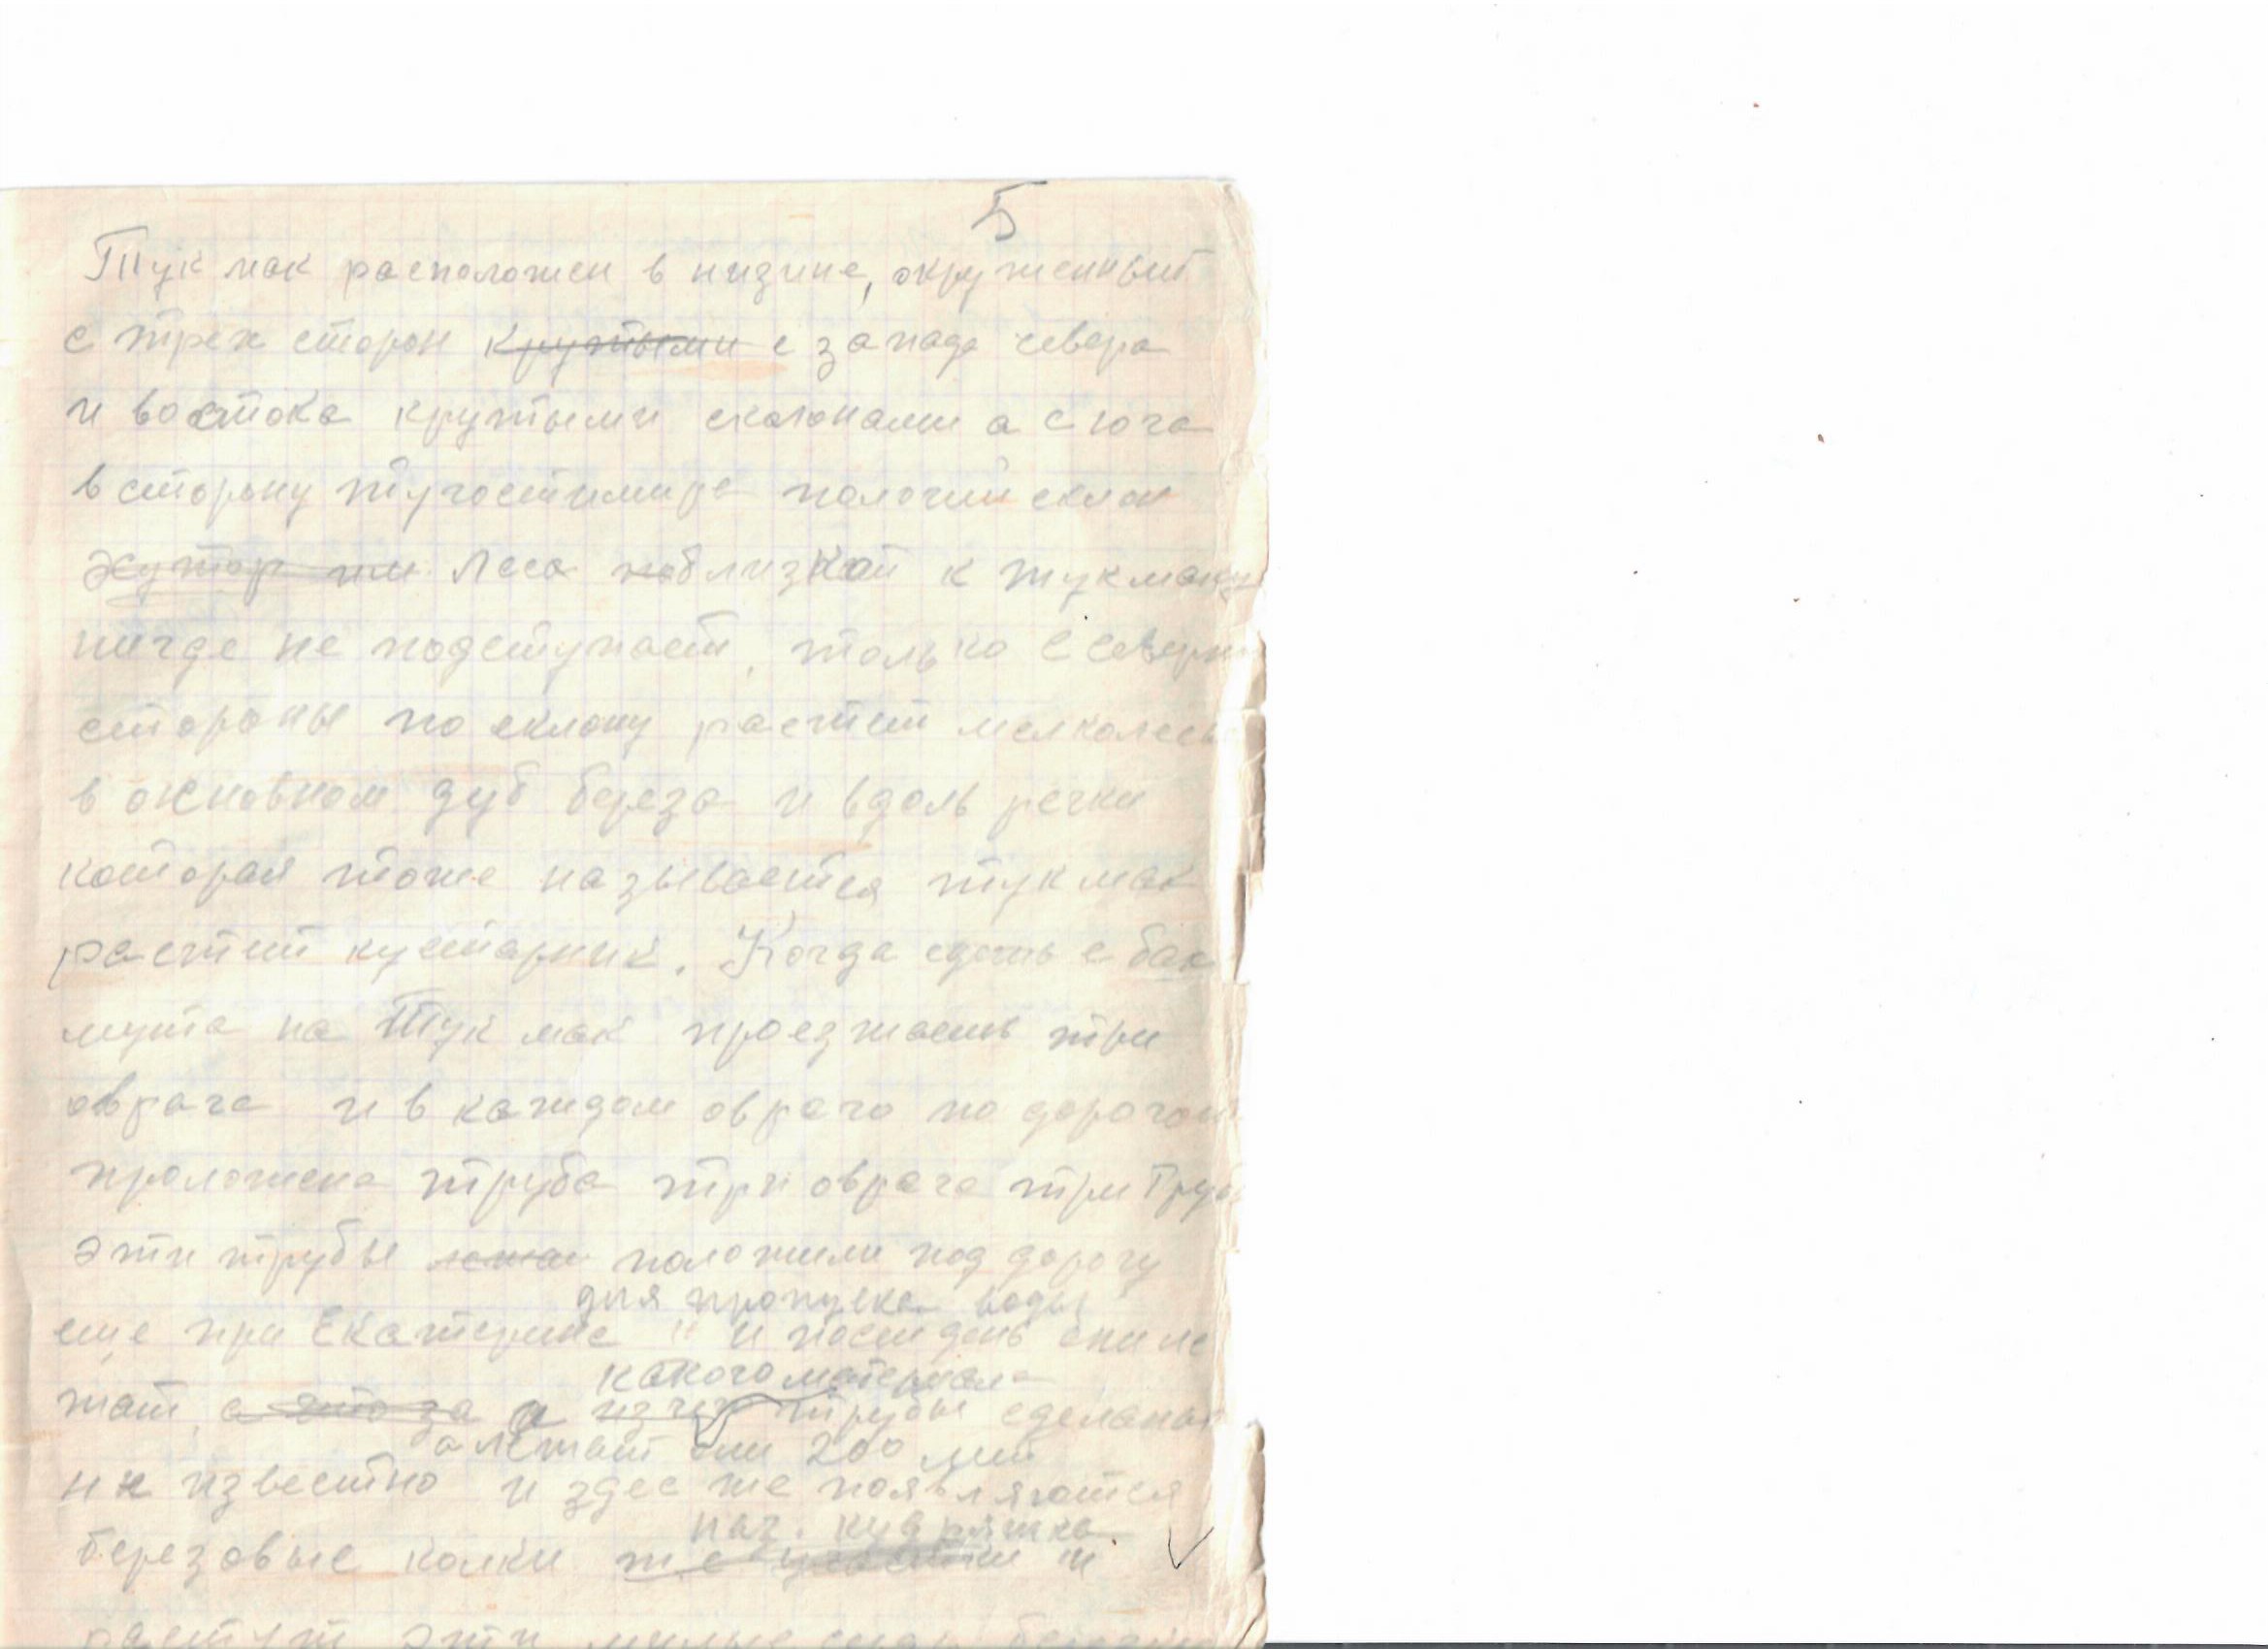 5
Тукмак расположен в низине, окруженный
с трех сторон крутыми с запада севера
и востока крутыми склонами а с юга
в сторону тугостимира пологий склон
Хутор Леса поблизкой к тукмаку
нигде не подступает, только с северн
стороны по склону растет мелколесь
в основном дуб береза и вдоль речки
которая тоже называется тукмак
растет кустарник. Когда едешь с бах
мута на Тукмак проезжаешь три
оврага и в каждом овраге по дорогой
проложена труба три оврага три труб
Эти трубы положили под дорогу
для пропуска воды
еще при Екатерине II и посей день они ле
какого материала
жат, а это за а из чего трубы сделаны
а лежат они 200 лет
не известно и здес же появляются
наз. кудряшка.
березовые колки и
растут эти милые